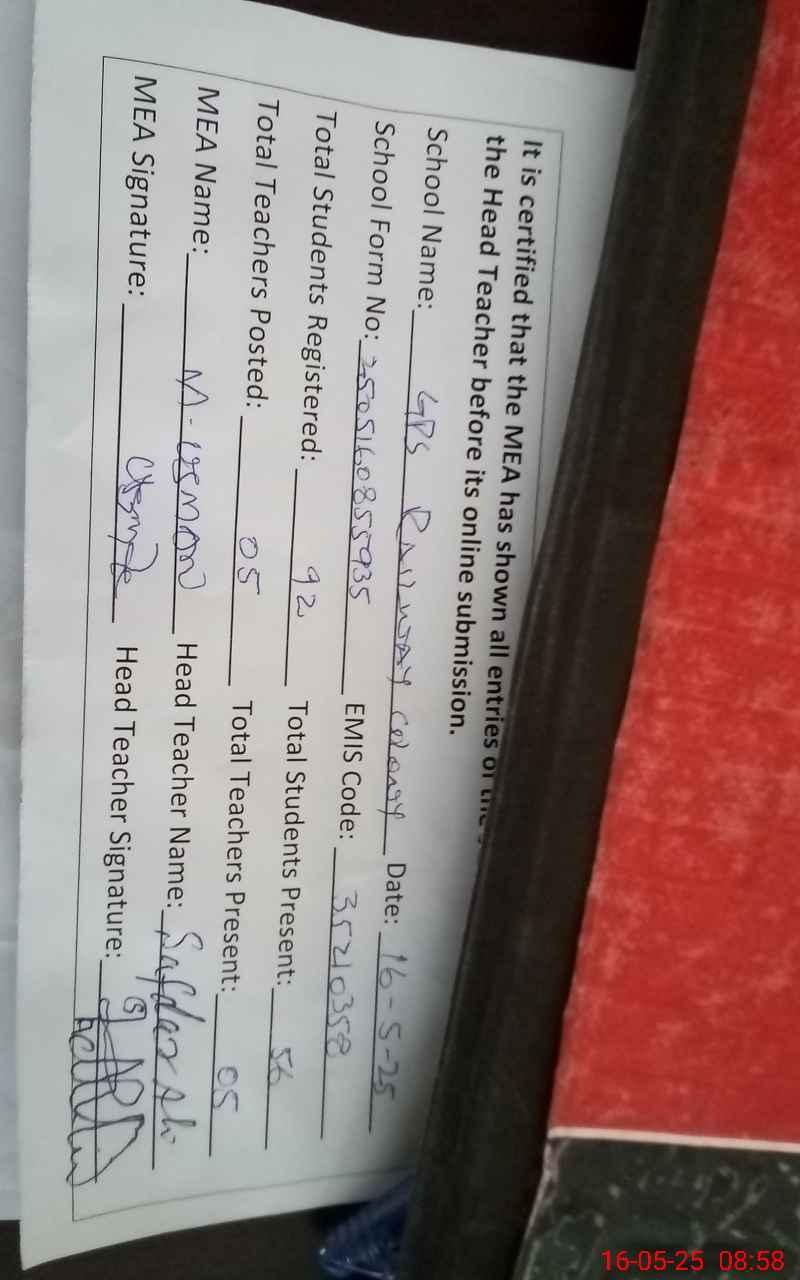 It is certified that the MEA has shown all entries of the
the Head Teacher before its online submission.
School Name: GPS Railway Colony Date: 16-5-25
School Form No: 2505160855935 EMIS Code: 35210358
Total Students Registered: 92 Total Students Present: 56
Total Teachers Posted: 05 Total Teachers Present: 05
MEA Name: M. Usman Head Teacher Name: Safdar Ali
MEA Signature: Head Teacher Signature:
16-05-25 08:58